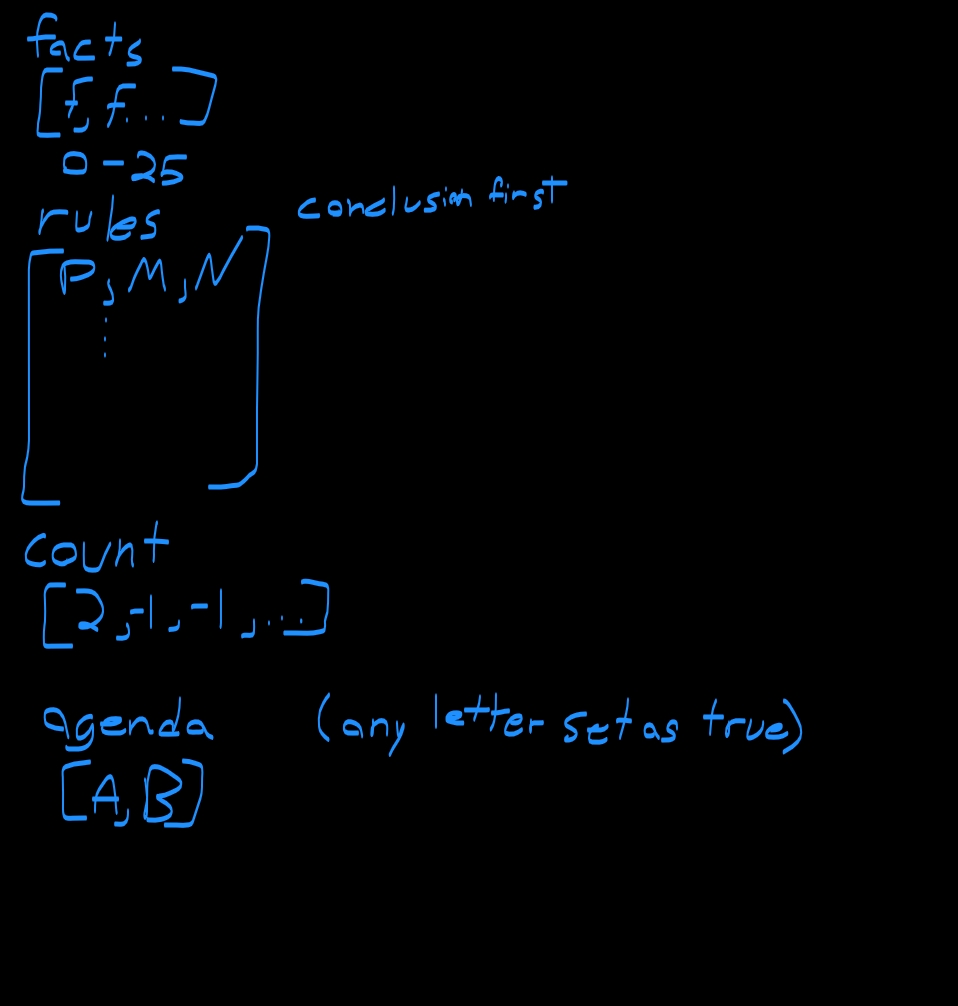 facts
[f, f...]
0-25
rules
conclusion first
[P, M, N
⋮
]
count
[2,-1,-1,...]
agenda (any letter set as true)
[A, B]